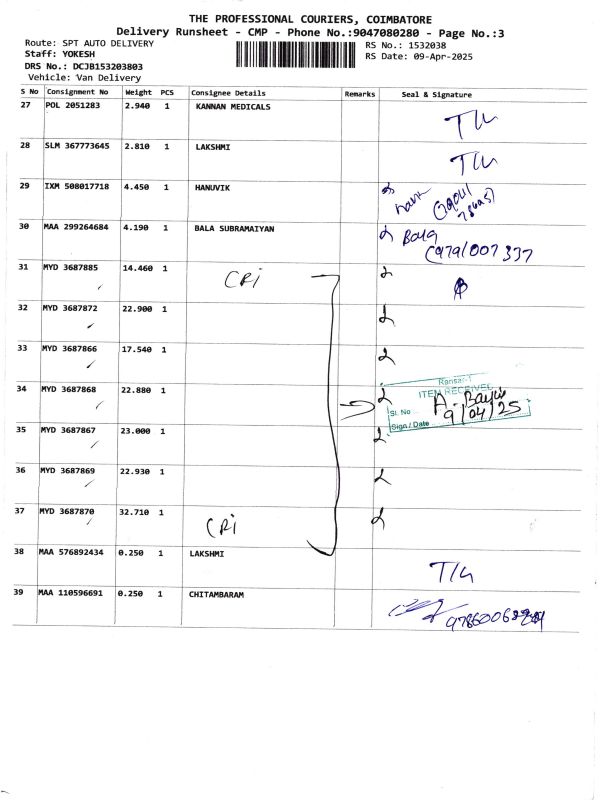 THE PROFESSIONAL COURIERS, COIMBATORE
Delivery Runsheet - CMP - Phone No.:9047080280 - Page No.:3
Route: SPT AUTO DELIVERY
RS No.: 1532038
Staff: YOKESH
RS Date: 09-Apr-2025
DRS No.: DCJB153203803
Vehicle: Van Delivery
S No Consignment No Weight PCS Consignee Details Remarks Seal & Signature
27 POL 2051283 2.940 1 KANNAN MEDICALS
28 SLM 367773645 2.810 1 LAKSHMI
29 IXM 508017718 4.450 1 HANUVIK
30 MAA 299264684 4.190 1 BALA SUBRAMAIYAN
Bala
9791007337
31 MYD 3687885 14.460 1 CRI
32 MYD 3687872 22.900 1
33 MYD 3687866 17.540 1
34 MYD 3687868 22.880 1
ITEM RECEIVED
Sl. No
9/04/25
Sign / Date
35 MYD 3687867 23.000 1
36 MYD 3687869 22.930 1
37 MYD 3687870 32.710 1 CRI
38 MAA 576892434 0.250 1 LAKSHMI
39 MAA 110596691 0.250 1 CHITAMBARAM